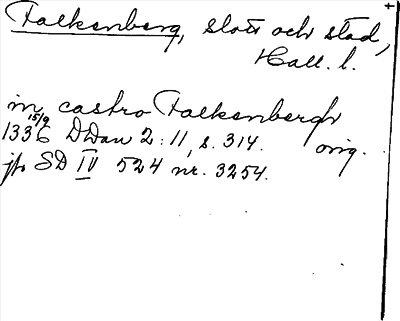 Falkenberg, slott och stad,
Hall. l.
in castro Falkenbergh
1336 15/9 DDan 2:11, s. 314. orig.
jfr SD IV 524 nr. 3254.